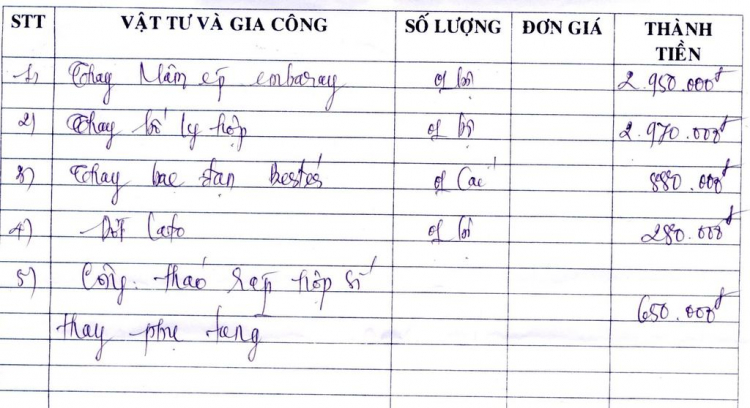 STT VẬT TƯ VÀ GIA CÔNG SỐ LƯỢNG ĐƠN GIÁ THÀNH TIỀN
1) Thay Mâm ép embaray 01 bộ 2.950.000đ
2) Thay bố ly hợp 01 bộ 2.970.000đ
3) Thay bạc đạn bestes 01 Cái 880.000đ
4) 01 bộ 280.000đ
5) Công tháo ráp hộp số
650.000đ
thay phụ tùng